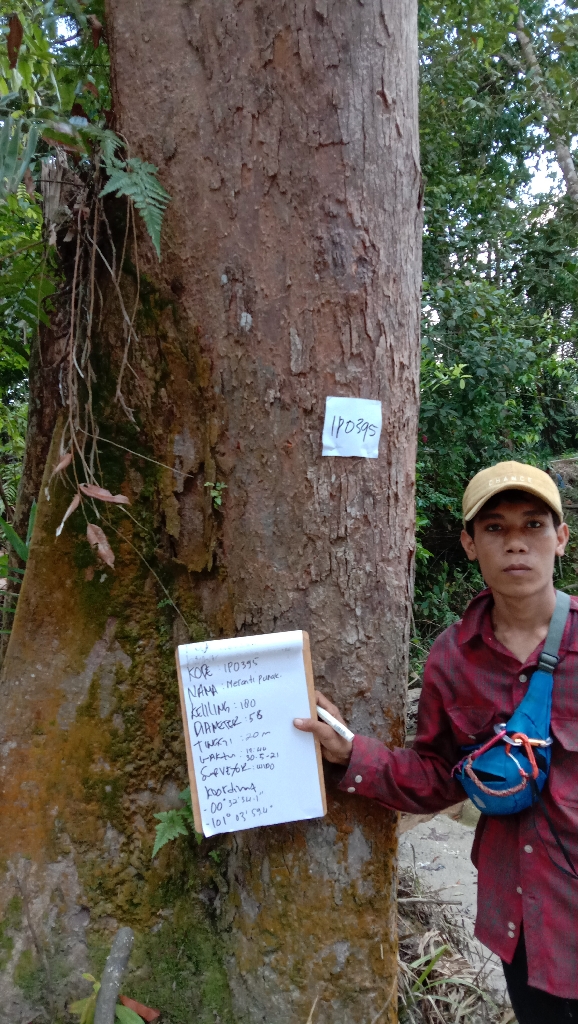 1P0395
KODE : 1P0395
NAMA : Meranti Punak.
KELILING : 180
DIAMETER : 58
TINGGI : 20 m
WAKTU : 30-5-21
SURVEYOR :
koordinat
- 00° 32' 34.1"
- 101° 03' 59.4"